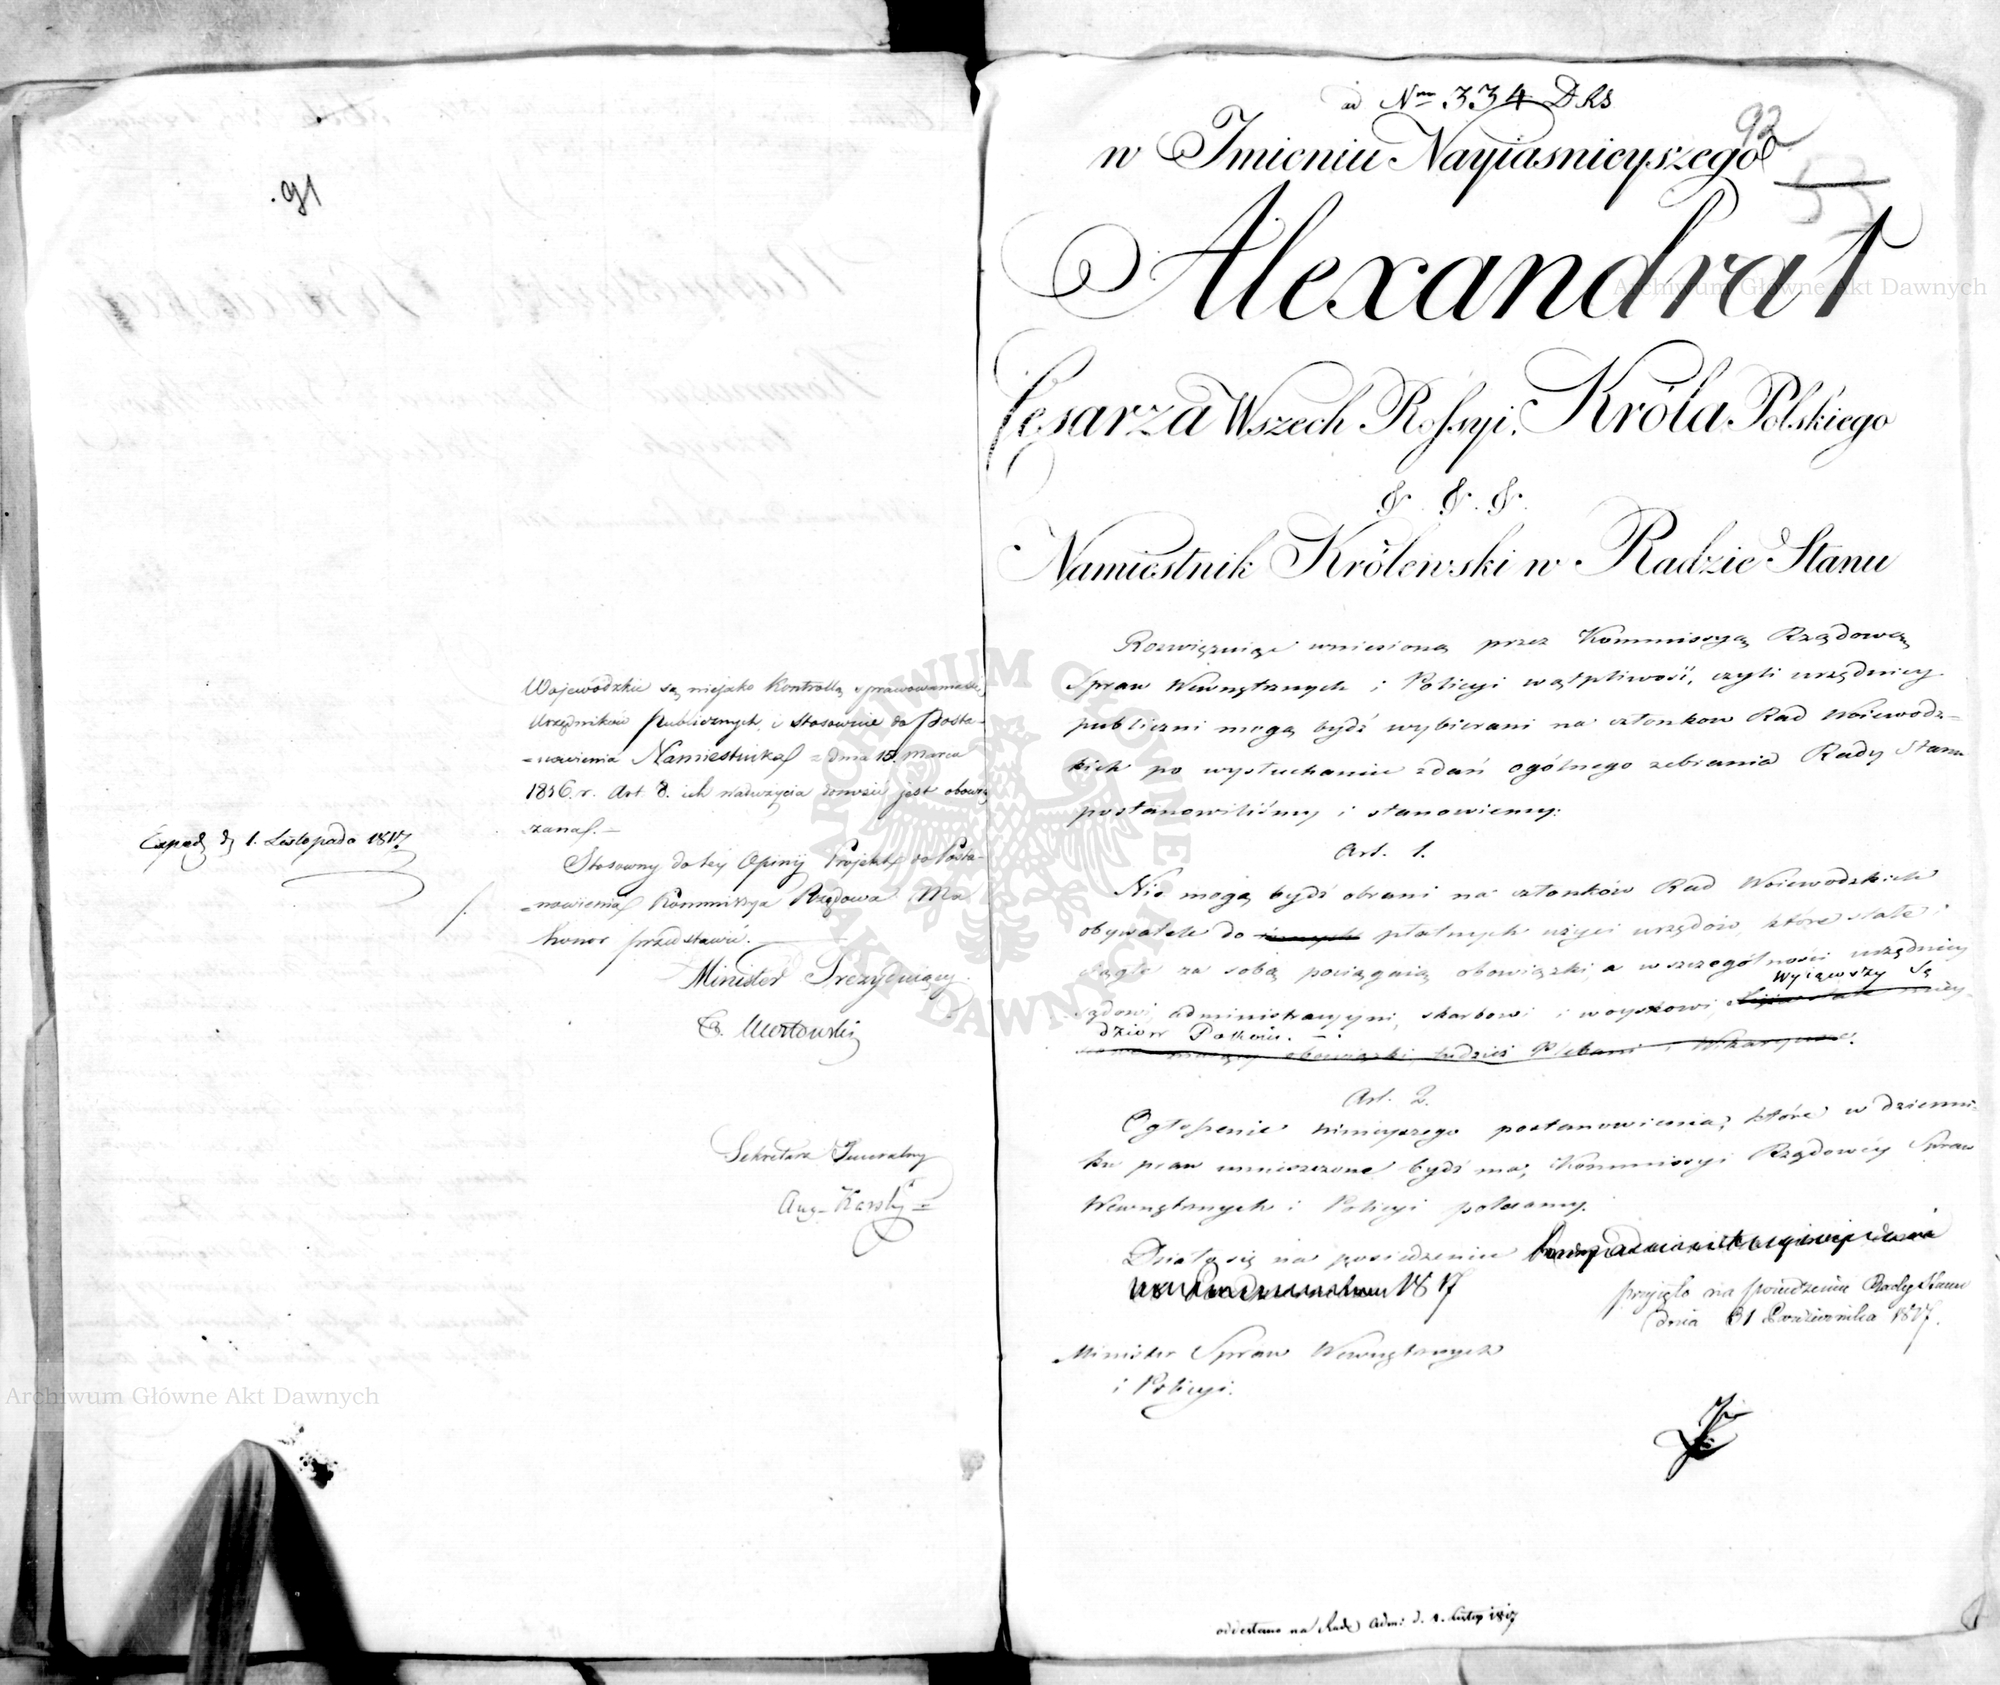 91
Wojewódzkie są niejako Kontrollą sprawowania się
Urzędników publicznych, i stosownie do Posta-
-nowienia Namiestnika z dnia 15. Marca
1816. r. Art 8. ich nadużycia donosić jest obowią
zana. —
Exped d 1. Listopada 1817
Stosowny do tey Opinij Projekt do Posta-
-nowienia Kommissya Rządowa Ma
honor przedstawić.
Minister Prezyduiący
Sekretarz Jeneralny
Aug. Karski
ad Nrm 334 DRS
92
w Imieniu Nayiasnieyszego
Alexandra I
Cesarza Wszech Rossyi, Króla Polskiego
&. &. &.
Namiestnik Królewski w Radzie Stanu
Rozwiązuiąc wniesioną przez Kommissyą Rządową
Spraw Wewnętrznych i Policyi wątpliwość, czyli urzędnicy
publiczni mogą bydź wybierani na członków Rad Woiewódz-
kich po wysłuchaniu zdań ogólnego zebrania Rady Stanu
postanowiliśmy i stanowiemy:
Art. 1.
Nie mogą bydź obrani na członków Rad Woiewódzkich
obywatele do płatnych użyci urzędów, które stałe i
ciągłe za sobą pociągaią obowiązki, a w szczególności urzędnicy
wyiąwszy Sę
sądowi, administracyjni, skarbowi i woyskowi,
dziów Pokoiu. —
obowiązki, tudzież Plebani i Wikaryusze.
Art. 2.
Ogłoszenie ninieyszego postanowienia, które w dzienni-
ku praw umieszczone bydź ma, Kommissyi Rządowéy Spraw
Wewnętrznych i Policyi polecamy.
Działo się na posiedzeniu
1817
przyjęto na posiedzeniu Rady Stanu
dnia 31 Października 1817.
Minister Spraw Wewnętrznych
i Policyi.
odesłano na Radę Admi: d. 1. Listop 1817
Archiwum Główne Akt Dawnych
Archiwum Główne Akt Dawnych
ARCHIWUM GŁÓWNE AKT DAWNYCH